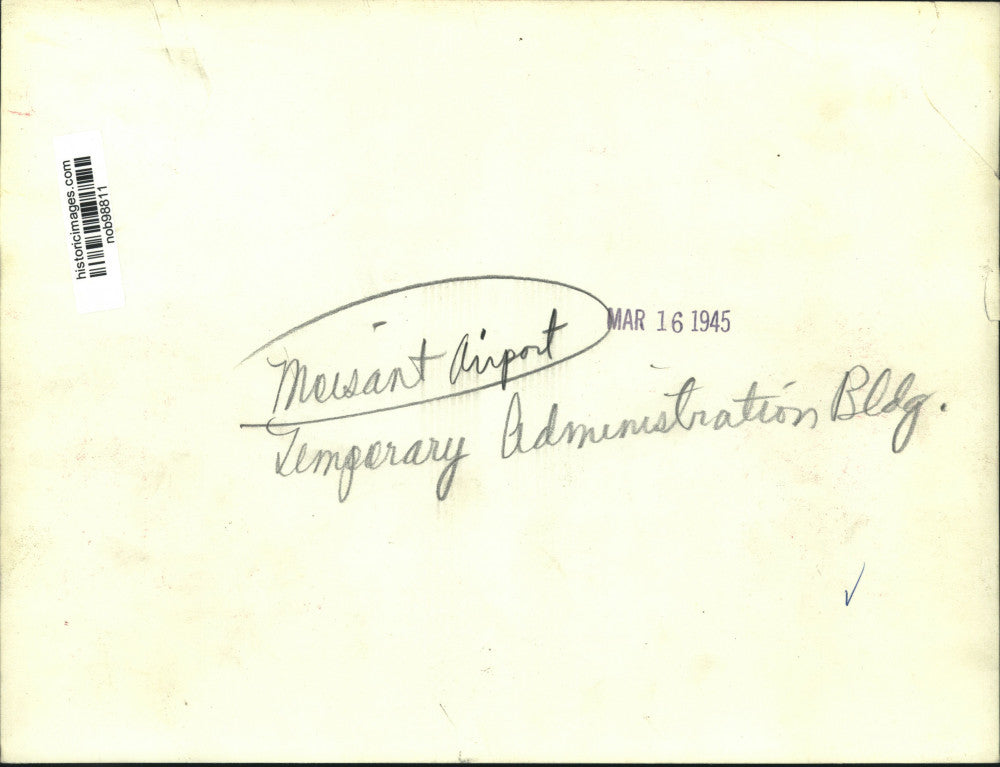 historicimages.com
nob98811
MAR 16 1945
Moisant Airport
Temporary Administration Bldg.